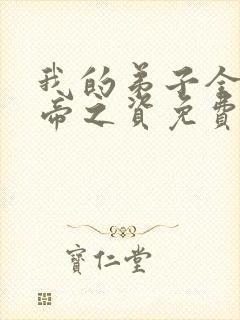 我的弟子全
帝之资免费
寶仁堂